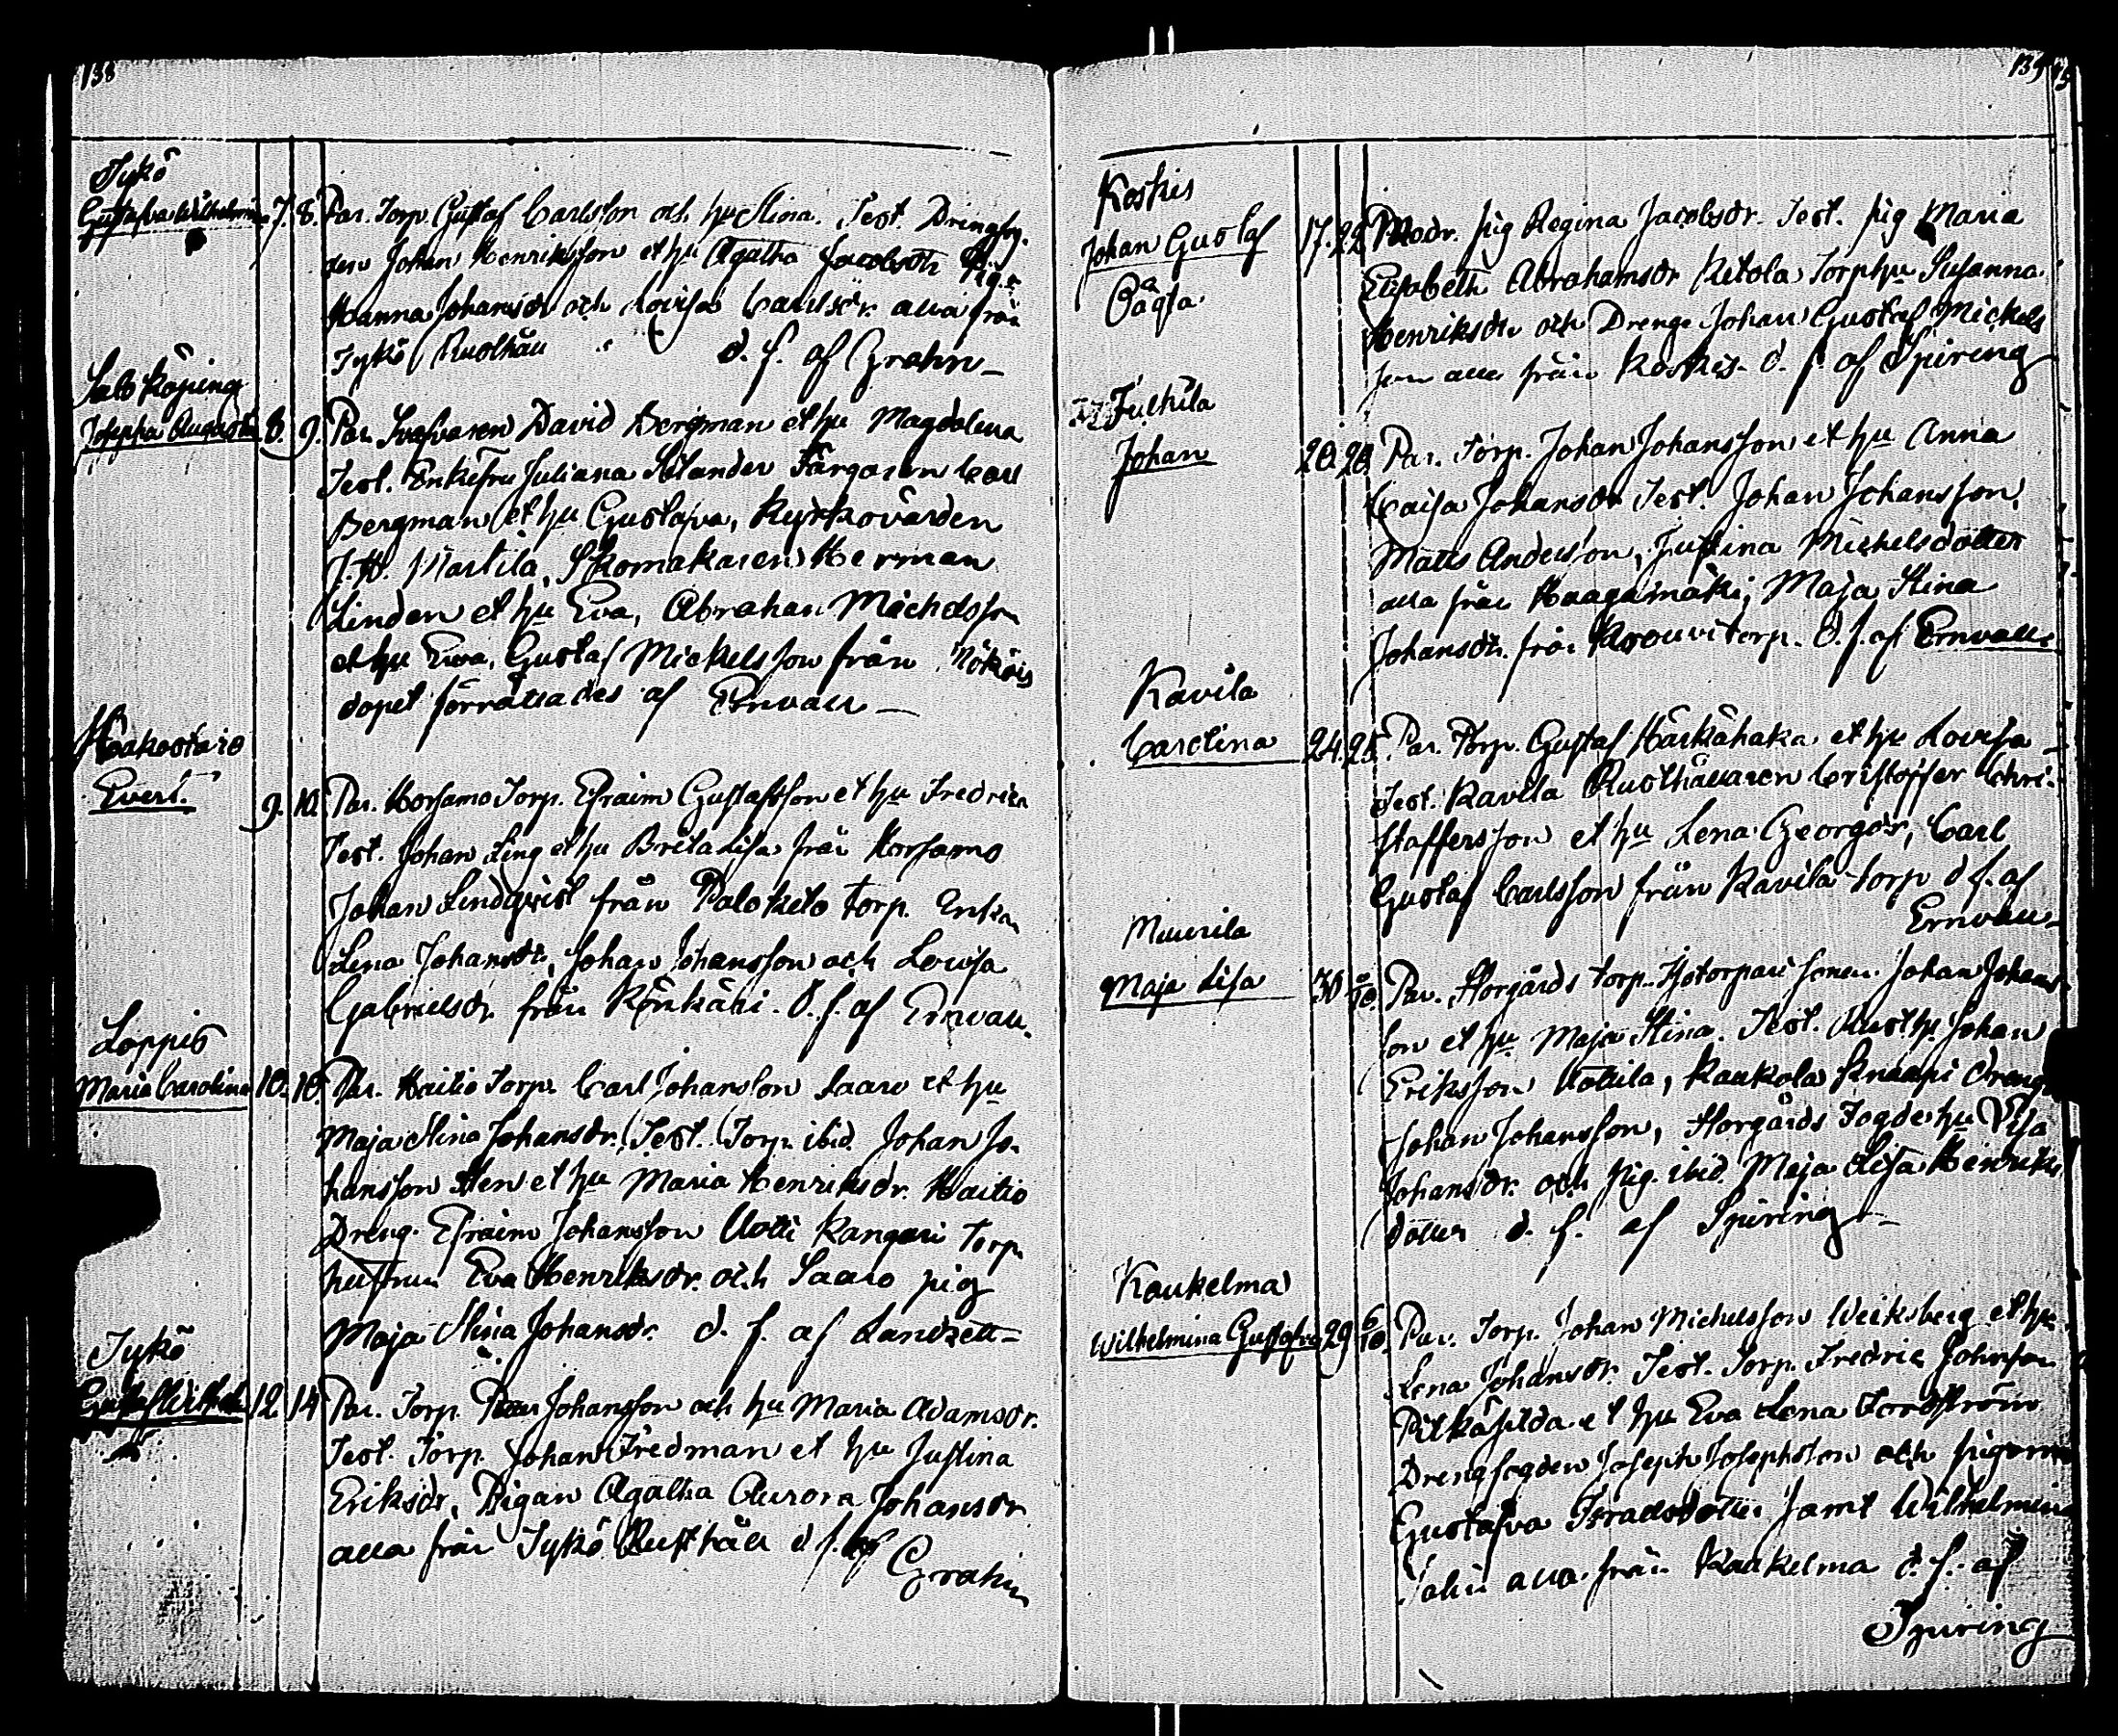 138
Tykö
Gustafva Wilhelmina 7. 8. Par. Torp. Gustaf Carlsson och hu Stina. Test. Drengfog-
den Johan Henriksson et hu Agatha Jacobsdr Pig.
Hanna Johansdr och Lovisa Carlsdr. alla från
Tykö Rusthåll d. f. af Grahn
Salo köping
Josepha Augusta 8. 9. Par. David Bergman et hu Magdalena
Test. Enkefru Juliana Färgaren Carl
Bergman et hu Gustafva, Kyrkovärden
J. H. Martila, Skomakaren Herman
Linden et hu Eva, Abraham Michelsson
et hu Eva, Gustaf Mickelsson från
dopet förrättades af Ernvall
Haakostaro
Evert 9. 10. Par. Horsamo Torp. Efraim Gustafsson et hu Fredrica
Test. Johan Ling et hu Brita Lisa från Horsamo
Johan Lindqvist från Paloketo torp. Enkan
Lena Johansdr, Johan Johansson och Lovisa
Gabrielsdr från d. f. af Ernvall
Loppis
Maria Carolina 10. 10. Par. Haitio Torp. Carl Johansson Saaro et hu
Maja Stina Johansdr. Test. Torp. ibid. Johan Jo-
hansson Sten et hu Maria Henriksdr. Haitio
Dreng. Efraim Johansson Uotti Kangari Torp.
hustrun Eva Henriksdr. och Saaro pig
Maja Stina Johansdr. d. f. af Landzett
Tykö
Gustaf Wilhelm 12 14 Par. Torp. Johansson och hu Maria Adamsdr.
Test. Torp. Johan Fredman et hu Justina
Eriksdr, Pigan Agatha Aurora Johansdr
alla från Tykö Rusthåll d. f. af Grahn
139
Koskis
Johan Gustaf 17. 22 Modr. pig Regina Jacobsdr. Test. pig Maria
Oägta Elisabeth Abrahamsdr Ketola Torp hu Susanna
Henriksdr och Dreng. Johan Gustaf Mickels
son alla från Koskis. d. f. af Spiring
Juhila
Johan 20. 20 Par. Torp. Johan Johansson et hu Anna
Caisa Johansdr Test. Johan Johansson,
Matts Andersson, Justina Michelsdotter
alla från Haagamäki, Maja Stina
Johansdr. från torp. d. f. af Ernvall
Kavila
Carolina 24. 25. Par. Torp. Gustaf Härkähaka et hu Lovisa
Test. Kavila Rusthållaren Cristoffer Chri-
stoffersson et hu Lena Georgsdr, Carl
Gustaf Carlsson från Kavila torp d. f. af
Ernvall
Muurila
Maja Lisa 30 Par. Storgårds torp. Johan Johans-
son et hu Maja Stina. Test. Johan
Eriksson Uotila, Kaukola Knaapi dreng
Johan Johansson, Storgårds Fogde hu Lisa
Johansdr. och pig. ibid. Maja Lisa Henriks
dotter d. f. af Spiring
Kaukelma
Wilhelmina Gustafva 29 6/10. Par. Torp. Johan Michelsson Weiksberg et hu
Lena Johansdr. Test. Torp. Fredric Johnsson
Pitkäsilda et hu Eva Lena
Drengfogden Joseph Josephsson och pigorna
Gustafva Israelsdotter samt Wilhelmina
alla från Kaukelma d. f. af
Spiring